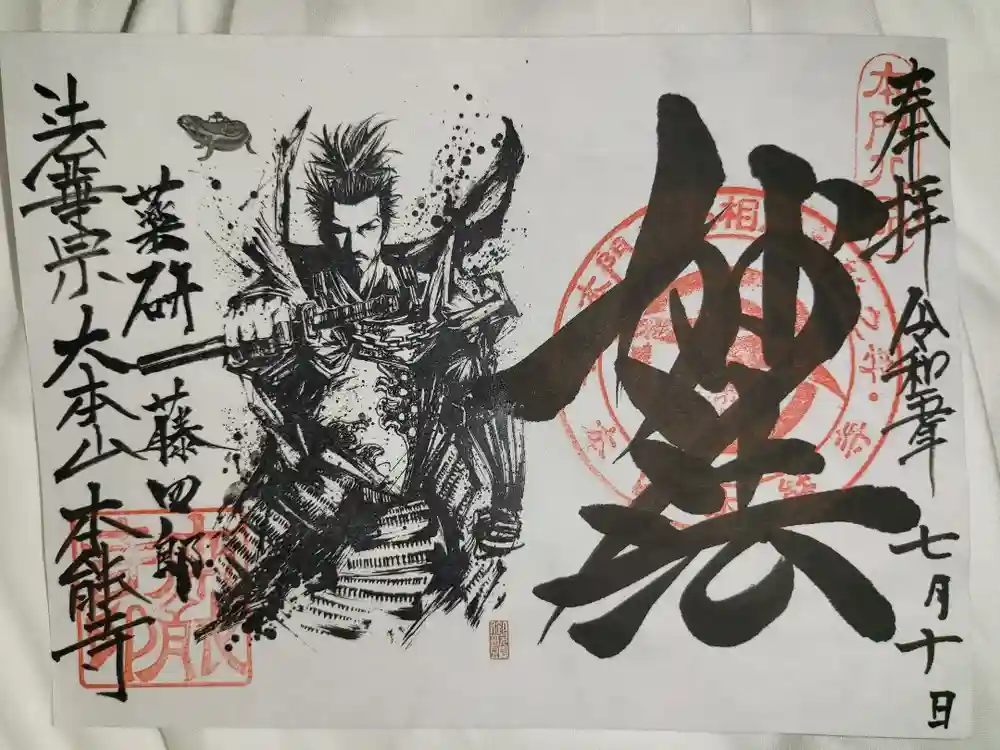 奉拝 令和五年 七月十日
妙法
薬研 藤四郎
法華宗 大本山 本能寺